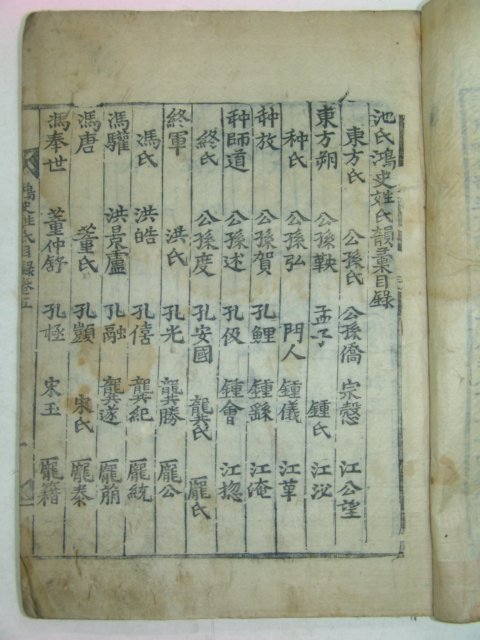 池氏鴻史姓氏韻彙目錄
東方氏 公孫氏 公孫僑 宗慤 江公望
東方朔 公孫鞅 孟子 鍾氏 江泌
种氏 公孫弘 門人 鍾儀 江革
种放 公孫賀 孔鯉 鍾繇 江淹
种師道 公孫述 孔伋 鍾會 江揔
終氏 公孫度 孔安國 龔氏 龐氏
終軍 洪氏 孔光 龔勝 龐公
馮氏 洪皓 孔僖 龔紀 龐統
馮驩 洪景盧 孔融 龔遂 龐萠
馮唐 董氏 孔顗 宋氏 龐秦
馮奉世 董仲舒 孔極 宋玉 龐籍
鴻史姓氏目錄卷之五